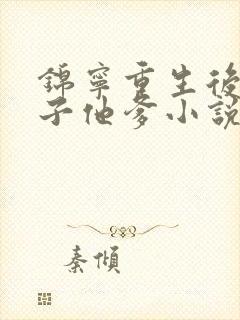 錦寧重生後
子他爹小說
秦傾